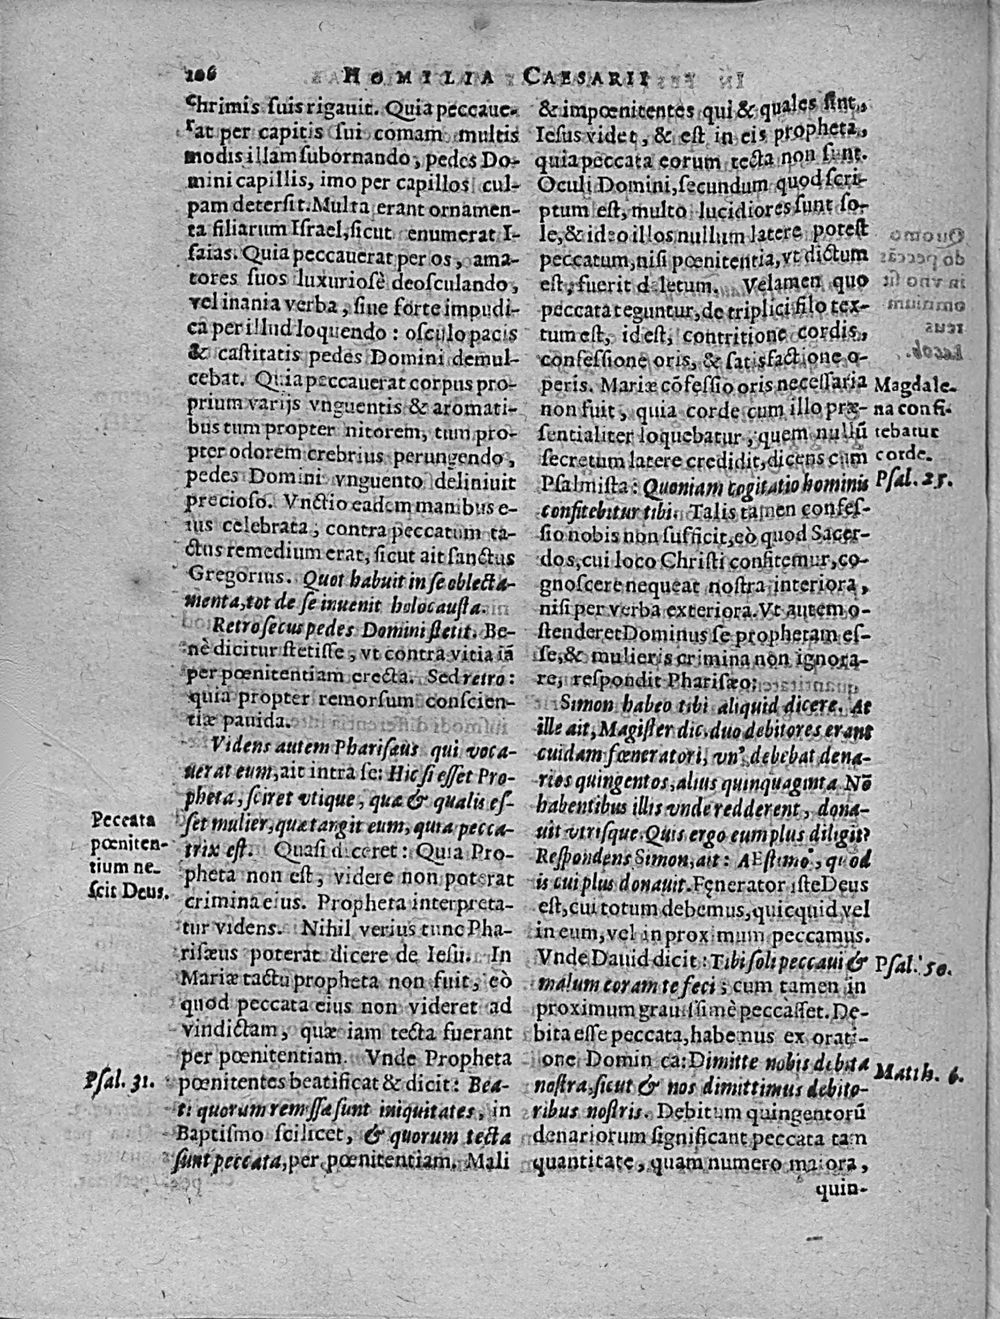 106 HOMILIA CAESARII
chrimis suis rigauit. Quia peccaue-
rat per capitis sui comam multis
modis illam subornando, pedes Do-
mini capillis, imo per capillos cul-
pam detersit. Multa erant ornamen-
ta filiarum Israel, sicut enumerat I-
saias. Quia peccauerat per os, ama-
tores suos luxuriosè deosculando,
vel inania verba, siue forte impudi-
ca per illud loquendo: osculo pacis
& castitatis pedes Domini demul-
cebat. Quia peccauerat corpus pro-
prium varijs vnguentis & aromati-
bus tum propter nitorem, tum pro-
pter odorem crebrius perungendo,
pedes Domini vnguento deliniuit
precioso. Vnctio eadem manibus e-
ius celebrata, contra peccatum ta-
ctus remedium erat, sicut ait sanctus
Gregorius. Quot habuit in se oblecta-
menta, tot de se inuenit holocausta.
Retro secus pedes Domini stetit. Be-
nè dicitur stetisse, vt contra vitia iã
per pœnitentiam erecta. Sed retro:
quia propter remorsum conscien-
tiæ pauida.
Videns autem Pharisæus qui voca-
uerat eum, ait intra se: Hic si esset Pro-
pheta, sciret vtique, quæ & qualis es-
set mulier, quæ tangit eum, quia pecca-
trix est. Quasi diceret: Quia Pro-
pheta non est, videre non poterat
crimina eius. Propheta interpreta-
tur videns. Nihil verius tunc Pha-
risæus poterat dicere de Iesu. In
Mariæ tactu propheta non fuit, eò
quod peccata eius non videret ad
vindictam, quæ iam tecta fuerant
per pœnitentiam. Vnde Propheta
pœnitentes beatificat & dicit: Bea-
ti quorum remissa sunt iniquitates, in
Baptismo scilicet, & quorum tecta
sunt peccata, per pœnitentiam. Mali
Peccata
pœniten-
tium ne-
scit Deus.
Psal. 31.
& impœnitentes qui & quales sint,
Iesus videt, & est in eis propheta,
quia peccata eorum tecta non sunt.
Oculi Domini, secundum quod scri-
ptum est, multo lucidiores sunt so-
le, & ideo illos nullum latere potest
peccatum, nisi pœnitentia, vt dictum
est, fuerit deletum. Velamen quo
peccata teguntur, de triplici filo tex-
tum est, id est, contritione cordis,
confessione oris, & satisfactione o-
peris. Mariæ cõfessio oris necessaria
non fuit, quia corde cum illo præ-
sentialiter loquebatur, quem nullũ
secretum latere credidit, dicens cum
Psalmista: Quoniam cogitatio hominis
confitebitur tibi. Talis tamen confes-
sio nobis non sufficit, eò quod Sacer-
dos, cui loco Christi confitemur, co-
gnoscere nequeat nostra interiora,
nisi per verba exteriora. Vt autem o-
stenderet Dominus se prophetam es-
se, & mulieris crimina non ignora-
re, respondit Pharisæo:
Simon habeo tibi aliquid dicere. At
ille ait, Magister dic, duo debitores erant
cuidam fœneratori, vn' debebat dena-
rios quingentos, alius quinquaginta. Nõ
habentibus illis vnde redderent, dona-
uit vtrisque. Quis ergo eum plus diligit?
Respondens Simon, ait: AEstimo, quod
is cui plus donauit. Fęnerator iste Deus
est, cui totum debemus, quicquid vel
in eum, vel in proximum peccamus.
Vnde Dauid dicit: Tibi soli peccaui &
malum coram te feci; cum tamen in
proximum grauissimè peccásset. De-
bita esse peccata, habemus ex orati-
one Dominica: Dimitte nobis debita
nostra, sicut & nos dimittimus debito-
ribus nostris. Debitum quingentorũ
denariorum significant peccata tam
quantitate, quam numero maiora,
quin-
Magdale-
na confi-
tebatur
corde.
Psal. 25.
Psal. 50.
Matth. 6.